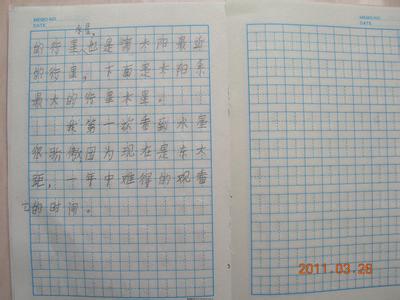 MEMO NO.
DATE
水星,
的行星也是离太阳最近
的行星,下面是太阳系
最大的行星木星。
我第一次看到水星
很骄傲因为现在是东大
距,一年中难得的观看
它的时间。
MEMO NO.
DATE
2011.03.28